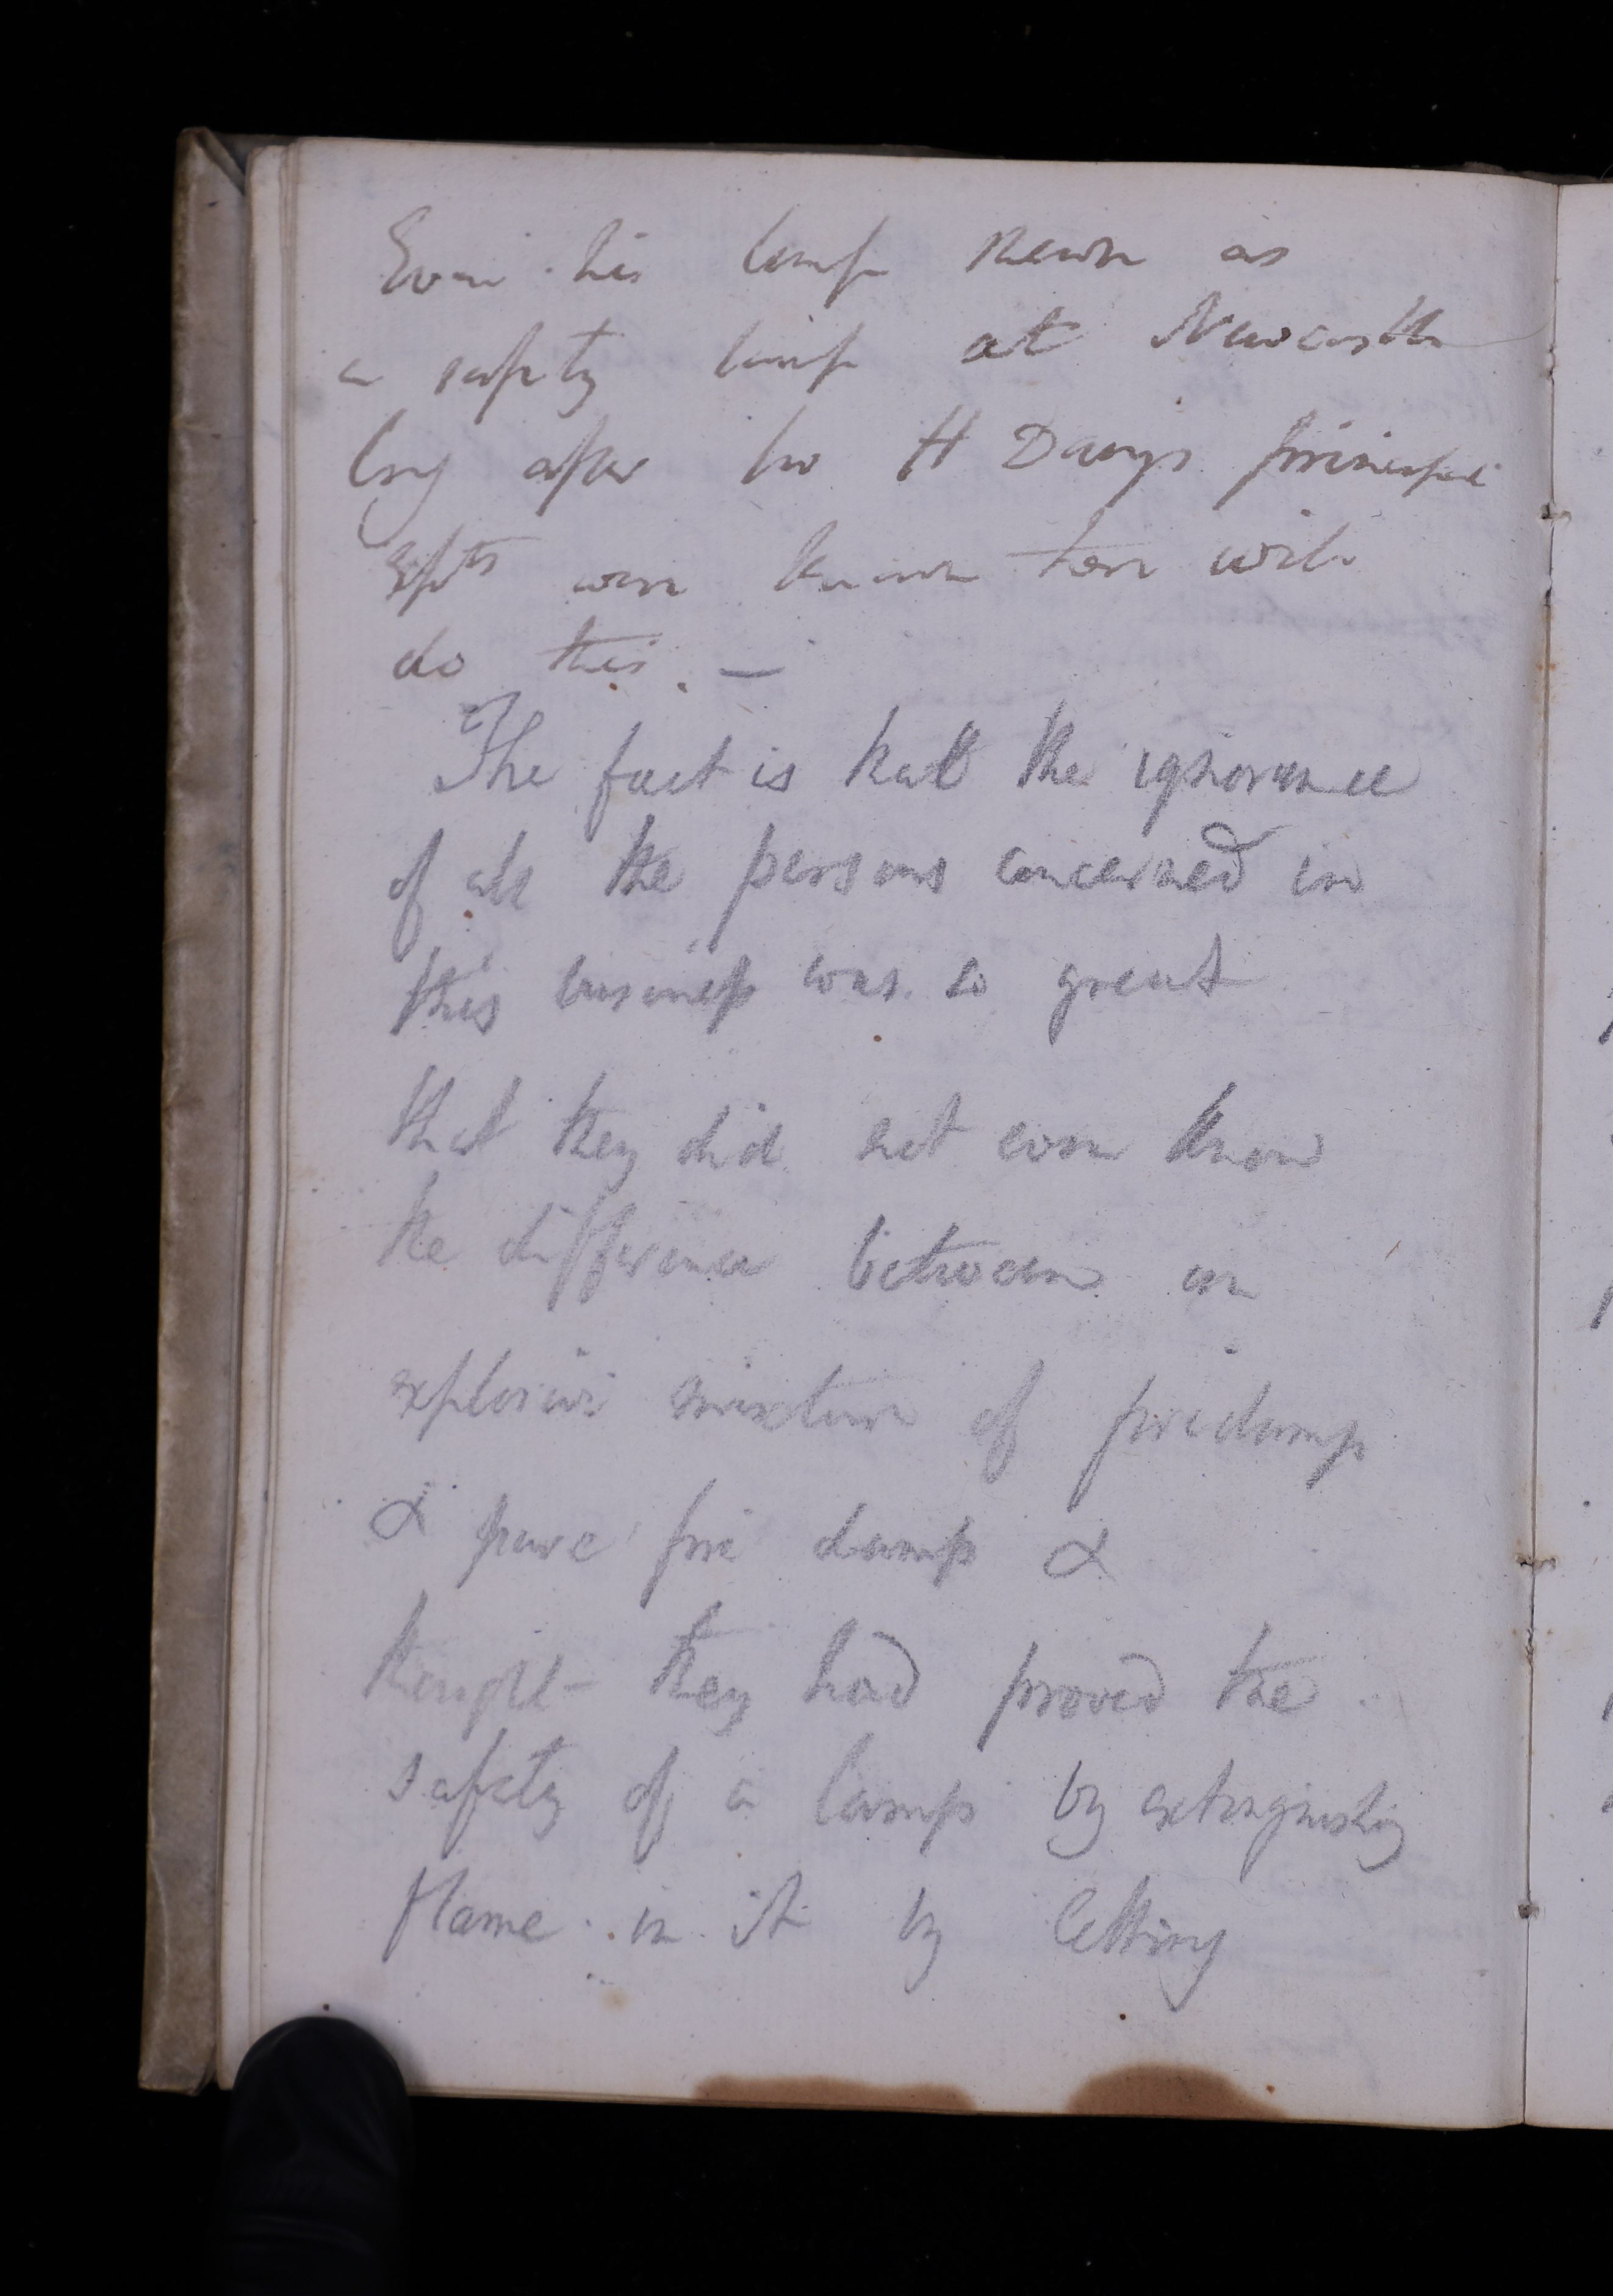 Even his lamp shewn as
a safety lamp at Newcastle
long after Sir H Davys principal
Expts were known there will
do this. —
The fact is that the ignorance
of all the persons concerned in
this business was so great
that they did not even know
the difference between an
explosive mixture of firedamp
& pure fire damp &
thought they had proved the
safety of a lamp by extinguishing
flame in it by letting